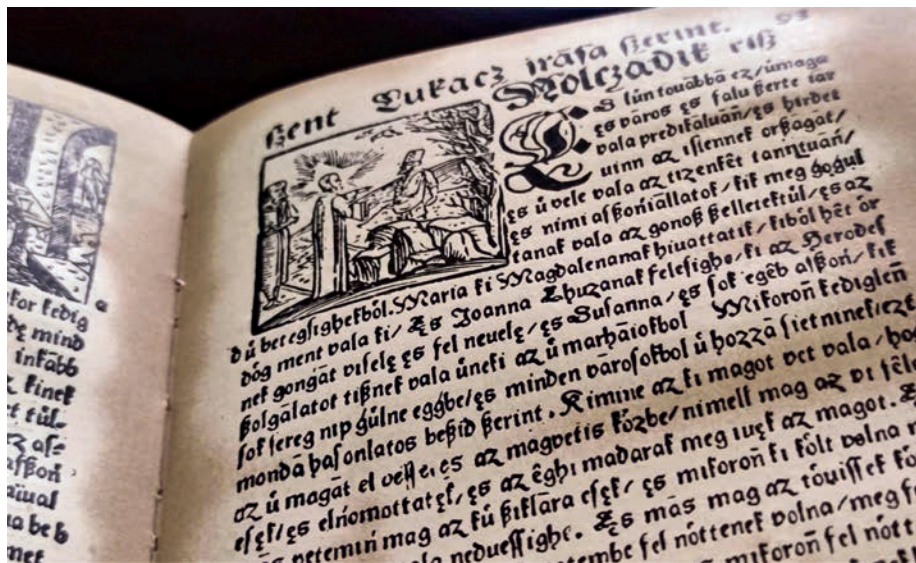 for kedig
mind
inkābb
kinek
túl-
aſ-
aſßoń
be
met
ßent Lukacz jrāſa ßerint.
Nolczadik riß
S lún touābbā ez/úmaga
ęs vāros ęs falu ßerte iar
vala predikāluāń/ęs hirdet
uinn az iſiennek orßāgāt/
ęs ú vele vala az tizenkēt tannituāń/
ęs nimi aſßońiāllatok/kik meg gogul
tanak vala az gonoß ßelletektúl/ęs az
ú beregſighekból. Maria ki Magdalenanak hiuattatik/kiból hēt ór
dóg ment vala ki/ Ęs Joanna Chuzanak feleſighe/ki az Herodeſ
nek gongāt viſelę ęs fel neuelę/ęs Suſanna/ęs ſok egēb aſßoń/kik
ßolgālatot tißnek vala úneki az ú marhāiokbol Mikoroń kediglēń
ſok ſereg nip gúlne eggbe/ęs minden vāroſokbol ú hozzā ſietninek/
mondā haſonlatos beßid ßerint. Kimine az ki magot vet vala/
az ú magāt el veſſei, ęs az magvetis kózbe/nimell mag az vt
eſęk/ęs elńomottatęk/ęs az ēghi madarak meg iuęk az magot.
vetemiń mag az kú ßiklāra eſęk/ ęs mikoroń ki kólt volna
nedueſſighe. Ęs mās mag az tóuiſſek
fel nóttenek volna/meg
mikoroń fel nótt